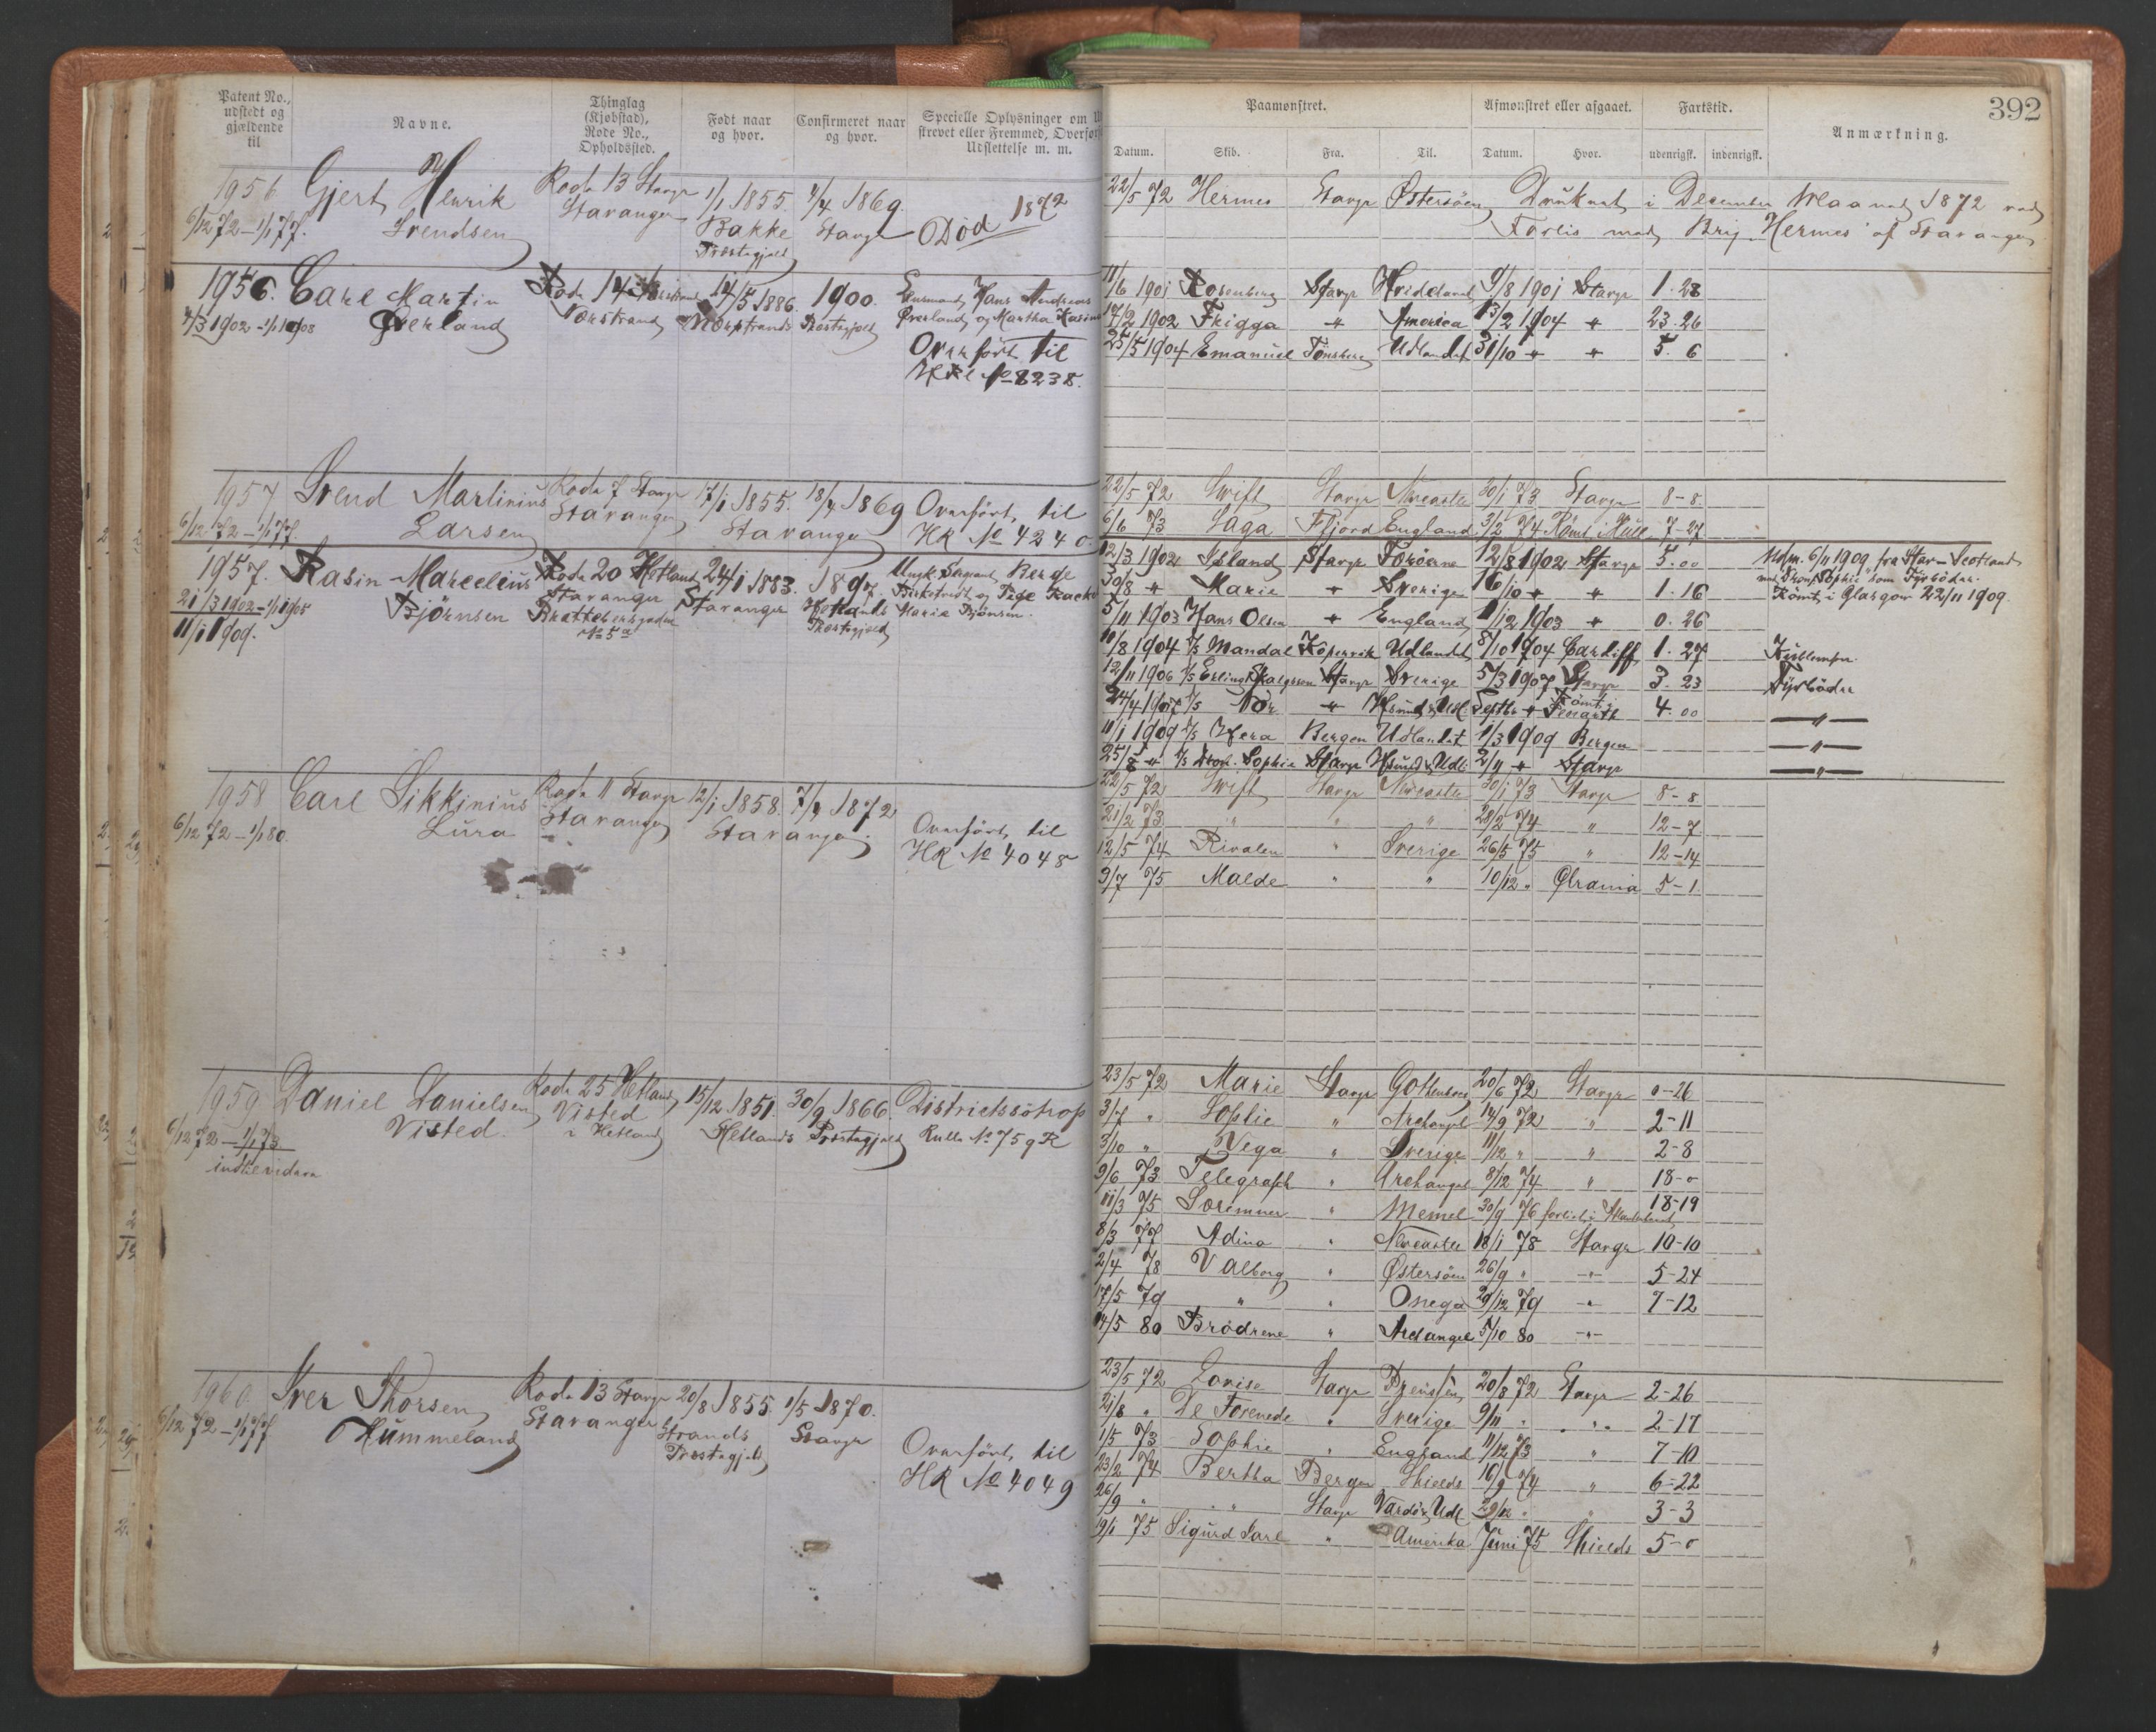 Patent No., udstedt og gjældende til
Navne.
Thinglag (Kjøbstad), Rode No., Opholdssted.
Født naar og hvor.
Confirmeret naar og hvor.
Specielle Oplysninger om
strevet eller Fremmed, Overført
Udslettelse m. m.
Paamønstret.
Afmønstret eller afgaaet.
Fartstid.
Anmærkning.
392
Datum. Skib. Fra. Til. Datum. Hvor. udenrigsk. indenrigsk.
1956 Gjert Henrik Rode 13 Stavgr 1/1 1855. 4/4 1869.
6/12 72 – 1/1 77. Svendsen Stavanger Bakke Stavgr Død 1872
Præstegjeld
22/5 72 Hermes Stavgr Østersøen Druknet i December Maaned 1872 ved
Forlis med Brig "Hermes" af Stavanger
1956. Carl Martin Rode 14 24/5 1886. 1900. Hans Andreas
4/3 1902 – 1/1 1908 Øverland Norstrand Præstegjeld Øverland og Martha
Overført til
HRl No 8238.
11/6 1901 Rosenberg Stavgr 9/8 1901 Stavgr 1. 28
17/2 1902 Frigga " Amerika 13/2 1904 " 23. 26
25/5 1904 Emanuel Tønsberg Udlandet 31/10 " " 5. 6
1957 Svend Martinius Rode 7 Stavgr 17/1 1855. 18/4 1869 Overført til
6/12 72 – 1/1 77. Larsen Stavanger Stavanger HR No 4240
22/5 72 Swift Stavgr Newcastle 30/1 73 Stavgr 8 – 8
6/6 73 Saga Fjord England 3/2 74 Rømt i Hull 7 – 27
1957. Rasin Marcelius Rode 20 Hetland 24/1 1883. 1897. Ungk. Sergeant Berge
21/3 1902 – 1/1 1908 Bjørnsen Stavanger Stavanger Hetlands
11/1 1909. No 5a Præstegjeld Marie Bjørnsen.
12/3 1902 Island Stavgr Færøerne 12/8 1902 Stavgr 5. 00
30/8 " Marie " Sverige 16/10 " " 1. 16
5/11 1903 Hans Olsen " England 1/12 1903 " 0. 26
10/8 1904 D/S Mandal Kopervik Udlandet 8/10 1904 Cardiff 1. 27
12/11 1906 D/S Erling Skalgsson Stavgr Sverige 5/3 1907 Stavgr 3. 23 Fyrbøder
24/4 1907 D/S Tor " Hsund & Udl. Septbr " Rømt i Penarth 4. 00 — " —
11/1 1909 D/S Hera Bergen Udlandet 1/3 1909 Bergen — " —
25/8 " D/S Dron. Sophie Stavgr Hsund & Udl. 2/11 " Stavgr — " —
Udm. 6/11 1909, fra Stav – Scotland
med "Dron. Sophie" som Fyrbøder.
Rømt i Glasgow 22/11 1909.
1958 Carl Sikkinius Rode 11 Stavgr 12/1 1858. 7/4 1872
6/12 72 – 1/1 80. Lura Stavanger Stavanger Overført til
HR No 4048
22/5 72 Swift Stavgr Newcastle 30/1 73 Stavgr 8 – 8
21/2 73 " " " 28/2 74 " 12 – 7
12/5 74 Rivalen " Sverige 26/5 75 " 12 – 14
9/7 75 Malde " " 10/12 " Chrania 5 – 1
1959 Daniel Danielsen Rode 25 Hetland 15/12 1851. 30/9 1866. Districtssötrop
6/12 72 – 1/1 73 Visted. Visted i Hetland Hetlands Præstegjeld Rulle No 759 R
23/5 72 Marie Stavgr Gothenborg 20/6 72 Stavgr 0 – 26
3/7 " Sophie " Archangel 14/9 72 " 2 – 11
3/10 " Vega " Sverige 11/12 " " 2 – 8
9/6 73 Telegraph " Archangel 8/12 74 " 18 – 0
11/3 75 " Memel 30/9 76 18 – 19
8/3 77 Adina " Newcastle 18/1 78 Stavgr 10 – 10
2/4 78 Valborg " Østersøen 26/9 " " 5 – 24
17/5 79 " " Onega 29/12 79 " 7 – 12
14/5 80 Brødrene " Archangel 5/10 80 "
1960 Iver Thorsen Rode 13 Stavgr 20/8 1855. 1/5 1870.
6/12 72 – 1/1 77 Hummeland Stavanger Strands Præstegjeld Stavgr Overført til
HR No 4049
23/5 72 Lovise Stavgr Preussen 20/8 72 Stavgr 2 – 26
21/8 " De Forenede " Sverige 9/11 " " 2 – 17
1/5 73 Sophie " England 11/12 73 " 7 – 10
23/2 74 Bertha Bergen Shields 16/9 74 " 6 – 22
26/9 " " Stavgr Vardø & Udl 29/12 " " 3 – 3
9/1 75 Sigurd Jarl " Amerika Juni 75 Shields 5 – 0